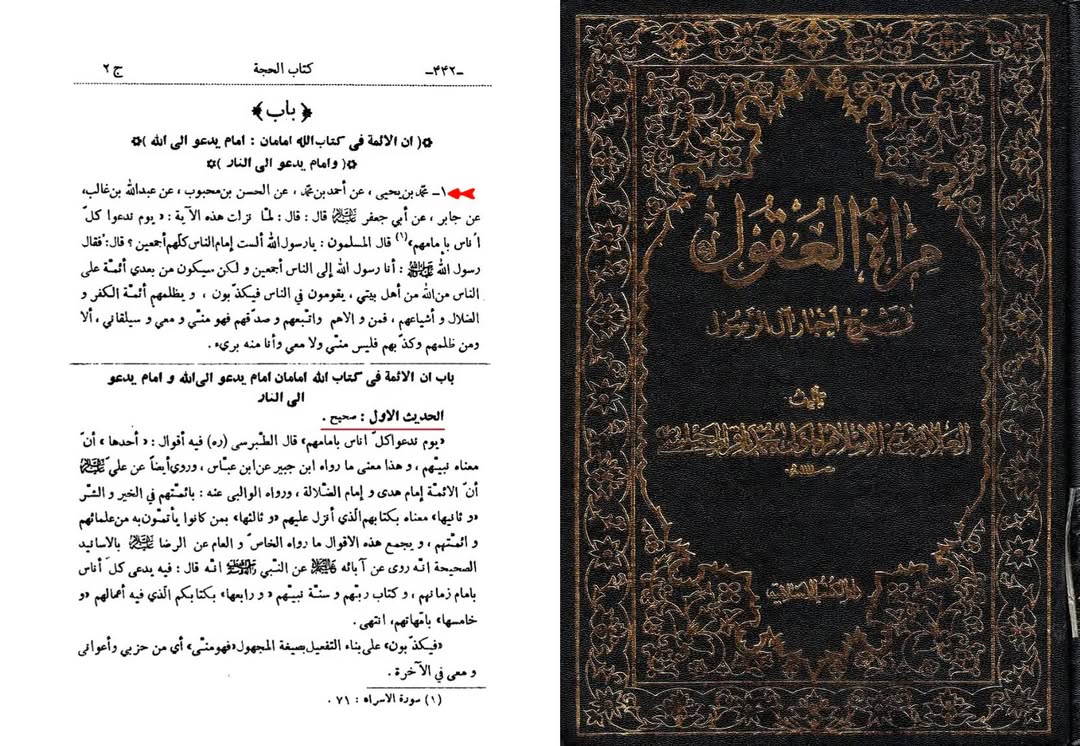 -۴۴۲-
كتاب الحجة
ج ۲
﴿ باب ﴾
✡( ان الائمة فى كتاب الله امامان : امام يدعو الى الله )✡
✡( وامام يدعو الى النار )✡
۱ـ عمّد بن يحيى ، عن أحمد بن عمّد ، عن الحسن بن محبوب ، عن عبدالله بن غالب،
عن جابر ، عن أبي جعفر عليه السلام قال : قال : لمّا نزلت هذه الآية : « يوم ندعوا كلّ
اُناس بإمامهم»(۱) قال المسلمون : يارسول الله ألست إمام الناس كلّهم أجمعين ؟ قال: فقال
رسول الله : أنا رسول الله إلى الناس أجمعين و لكن سيكون من بعدي أئمّة على
الناس من الله من أهل بيتي ، يقومون في الناس فيكذّبون ، و يظلمهم أئمّة الكفر و
الضلال و أشياعهم ، فمن والاهم واتّبعهم و صدّقهم فهو منّي و معي و سيلقاني ، ألا
ومن ظلمهم وكذّبهم فليس منّي ولا معي وأنا منه بريء .
باب ان الائمة فى كتاب الله امامان امام يدعو الى الله و امام يدعو
الى النار
الحديث الاول : صحيح .
«يوم ندعواكلّ اناس بامامهم» قال الطّبرسى (ره) فيه أقوال : « أحدها » أنّ
معناه نبيّهم ، و هذا معنى ما رواه ابن جبير عن ابن عبّاس ، وروي أيضاً عن عليّ عليه السلام
أنّ الائمّة إمام هدى و إمام الضّلالة ، ورواه الوالبى عنه : بائمّتهم في الخير و الشّر
«و ثانيها» معناه بكتابهم الّذي أنزل عليهم «و ثالثها» بمن كانوا يأتمّون به من علمائهم
و ائمّتهم ، و يجمع هذه الاقوال ما رواه الخاصّ و العام عن الرضا عليه السلام بالاسانيد
الصحيحة انّه روى عن آبائه عليهم السلام عن النبي انّه قال : فيه يدعى كلّ أناس
بامام زمانهم ، و كتاب ربّهم و سنّة نبيّهم « و رابعها» بكتابكم الّذي فيه أعمالهم «و
خامسها» بامّهاتهم، انتهى .
«فيكذّبون» على بناء التفعيل بصيغة المجهول «فهو منّي» أي من حزبي وأعوانى
و معى في الآخرة .
(۱) سورة الاسراء : ۷۱ .
مرآة العقول
فى شرح اخبار آل الرسول
تأليف
دار الكتب الاسلامية